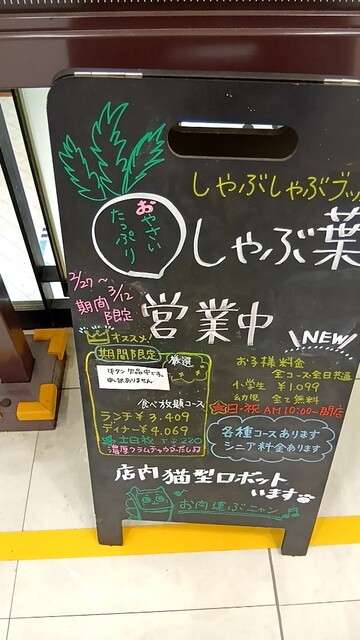 しゃぶしゃぶブッ
おやさい
たっぷり
しゃぶ葉
2/27〜
3/12
期間
限定
営業中
NEW
オススメ!
期間限定
厳選
牛タン欠品中です。
申し訳ありません
食べ放題コース
ランチ¥3.409
ディナー¥4.069
土日祝 220
濃厚クラムチャウダーだし
お子様料金
全コース全日共通
小学生 ¥1.099
幼児 全て無料
日・祝 AM10:00〜開店
各種コースあります
シニア料金あります
店内猫型ロボット
います
お肉運ぶニャン